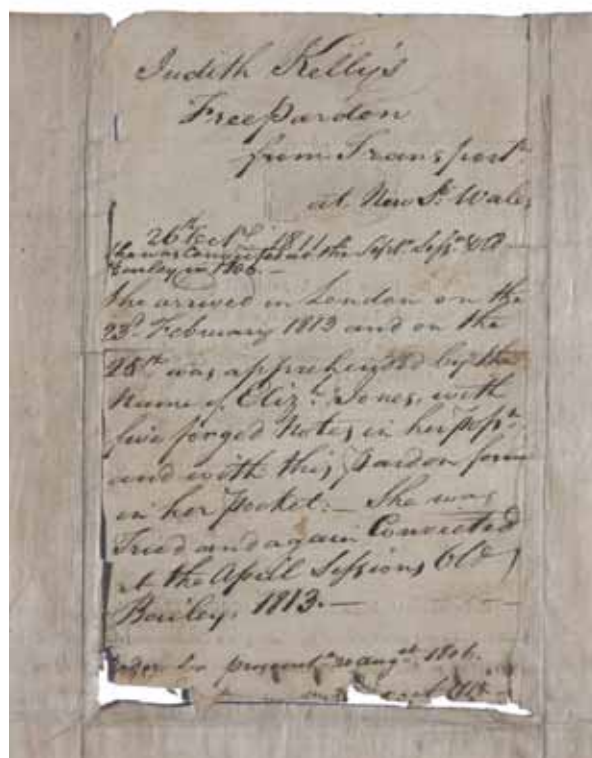 Judith Kelly's
Free Pardon
from Transport
at New So. Wales
26th Octr. 1811
She was Convicted at the Sept. Sessn. Old
Bailey in 1806.—
She arrived in London on the
23d. February 1813 and on the
28th was apprehended by the
Name of Elizth. Jones, with
five forged Notes in her possn.
and with this Pardon form
in her Pocket:— She was
Tried and again Convicted
at the April Sessions Old
Bailey, 1813.—
Order to prosecute 20 augst. 1806.